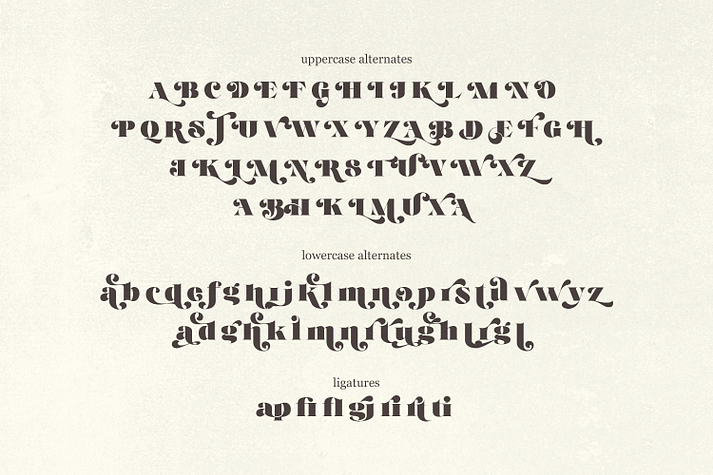 uppercase alternates
A B C D E F G H I J K L M N O
P Q R S T U V W X Y Z A B D E F G H
J K L M N R S T U V W X Z
A B H K L M U X A
lowercase alternates
a b c d e f g h i j k l m n o p r s t d v w y z
a d g h k l m n r t u g h l r g l
ligatures
ap fi fl gj ri rt ti